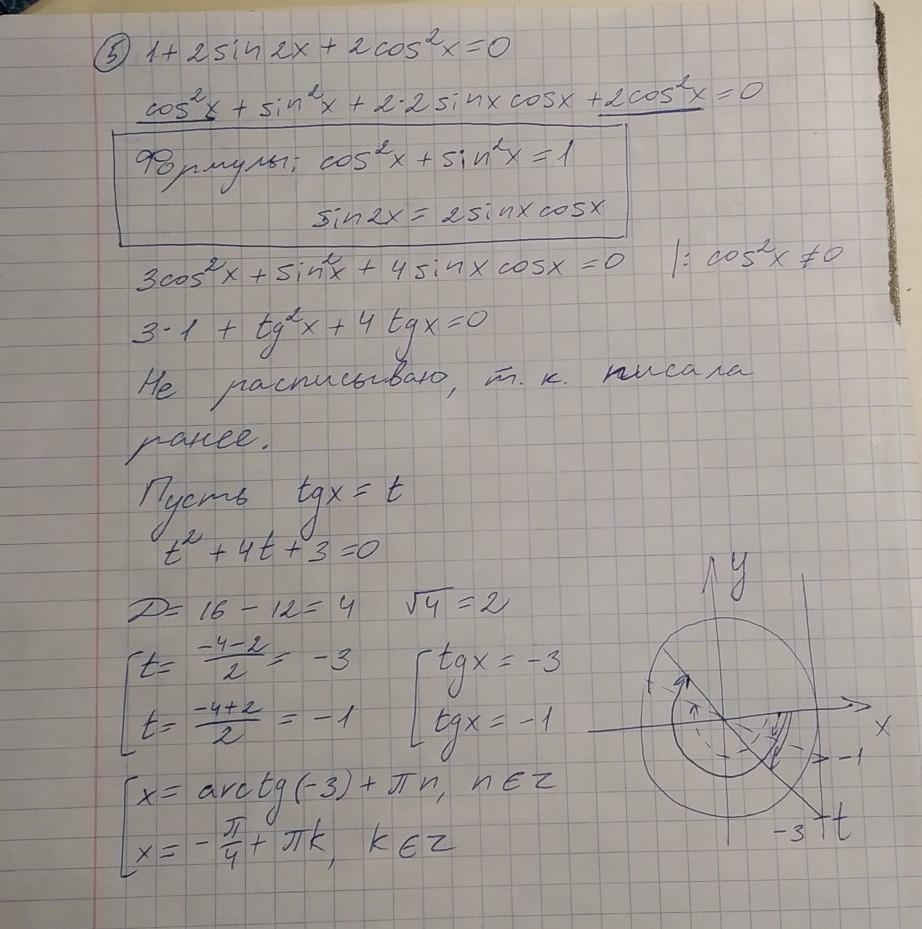 ⑤ 1 + 2 sin 2x + 2cos²x = 0
cos²x + sin²x + 2·2 sinx cosx + 2cos²x = 0
Формулы: cos²x + sin²x = 1
sin2x = 2sinx cosx
3cos²x + sin²x + 4 sinx cosx = 0 |: cos²x ≠ 0
3·1 + tg²x + 4 tgx = 0
Не расписываю, т. к. писала
ранее.
Пусть tgx = t
t² + 4t + 3 = 0
D = 16 - 12 = 4 √4 = 2
[ t = (-4-2)/2 = -3 [ tgx = -3
t = (-4+2)/2 = -1 tgx = -1
[ x = arctg(-3) + πn, n ∈ z
x = -π/4 + πk, k ∈ z
y
x
-1
-3 t